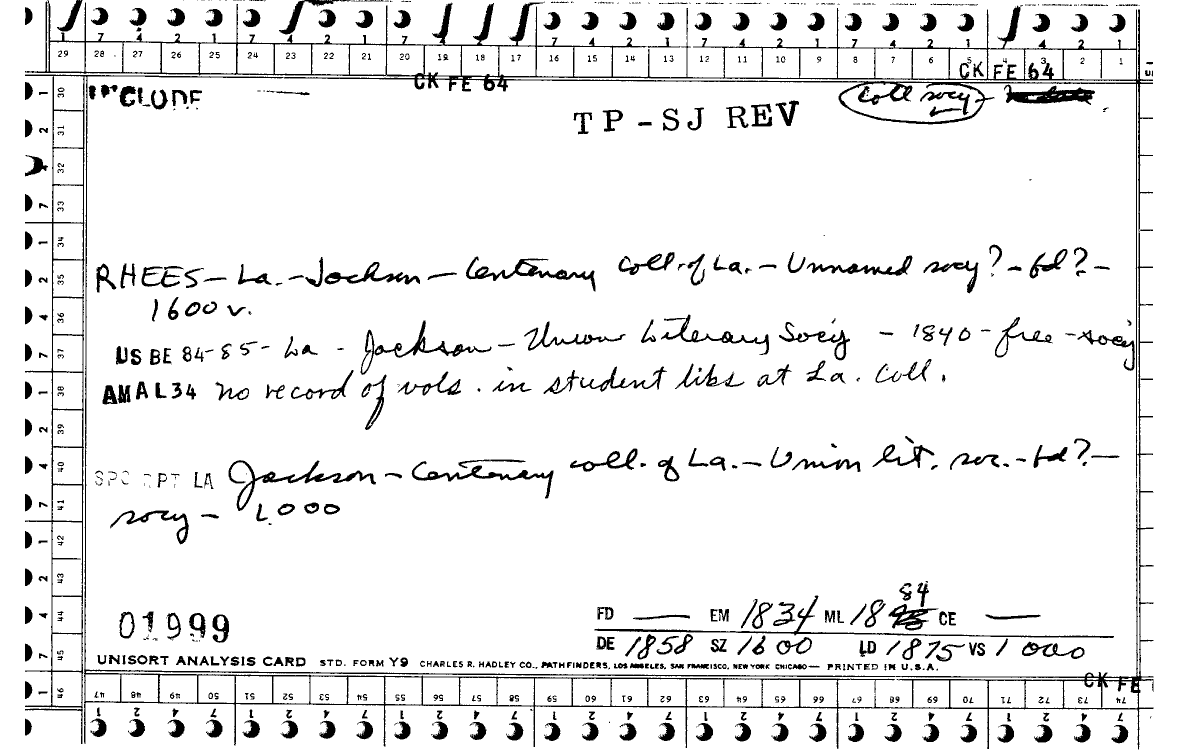 1 7 4 2 1 7 4 2 1 7 4 2 1 7 4 2 1 7 4 2 1 7 4 2 1 7 4 2 1
29 28 27 26 25 24 23 22 21 20 19 18 17 16 15 14 13 12 11 10 9 8 7 6 5 4 3 2 1
CK FE 64 CK FE 64
CLUDE Coll socy
TP-SJ REV
RHEES - La. - Jackson - Centenary Coll. of La. - Unnamed socy? - fd? -
1600 v.
US BE 84-85 - La - Jackson - Union Literary Soc'y - 1840 - free - soc'y
AM AL34 no record of vols. in student libs at La. Coll.
SPC RPT LA Jackson - Centenary coll. of La. - Union lit. soc. - fd? -
socy - 1,000
84
01999 FD — EM 1834 ML 18 CE —
DE 1858 SZ 1600 LD 1875 VS 1000
UNISORT ANALYSIS CARD STD. FORM Y9 CHARLES R. HADLEY CO., PATHFINDERS, LOS ANGELES, SAN FRANCISCO, NEW YORK CHICAGO — PRINTED IN U.S.A.
CK FE
47 48 49 50 51 52 53 54 55 56 57 58 59 60 61 62 63 64 65 66 67 68 69 70 71 72 73 74
1 2 4 7 1 2 4 7 1 2 4 7 1 2 4 7 1 2 4 7 1 2 4 7 1 2 4 7
1 30
2 31
32
7 33
1 34
2 35
4 36
7 37
1 38
2 39
4 40
7 41
1 42
2 43
4 44
7 45
1 46